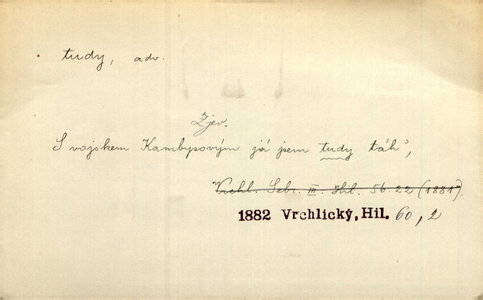 tudy, adv.
Zjev.
S vojskem Kambysovým já jsem tudy táh',
Vrchl. Sebr. III. Hil. 56.22 (1881)
1882 Vrchlický, Hil. 60, 2